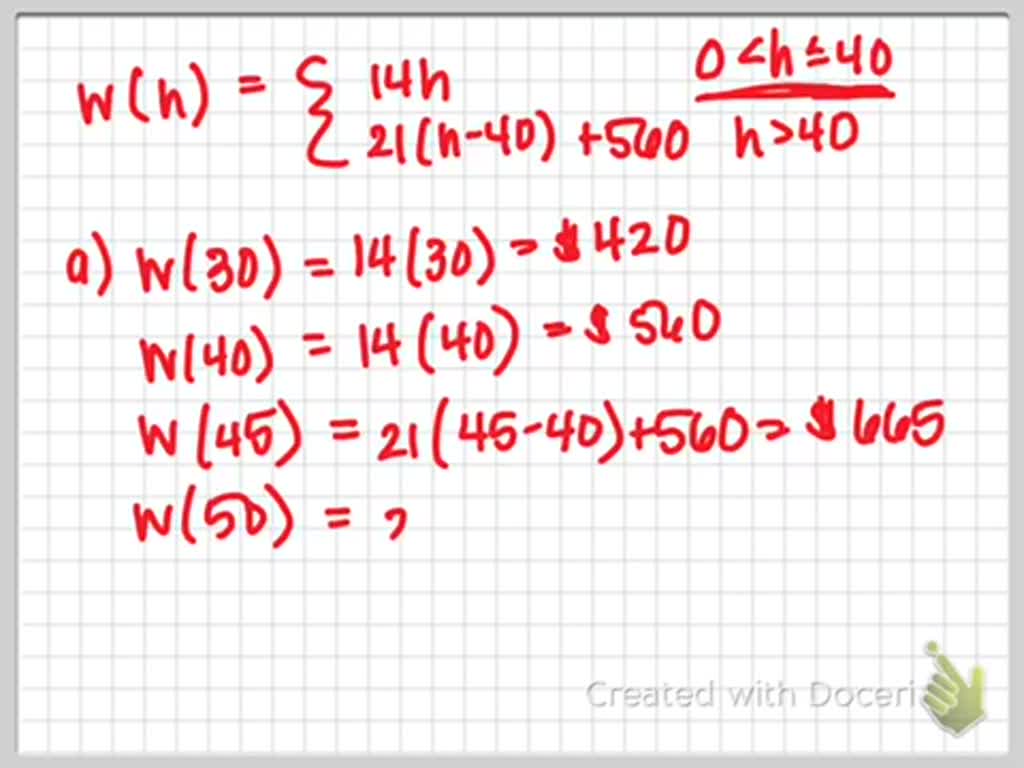 w(h) = { 14h 0 < h ≤ 40
21(h-40) + 560 h > 40
a) w(30) = 14(30) = $420
w(40) = 14(40) = $560
w(45) = 21(45-40)+560 = $665
w(50) = 2
Created with Doceri